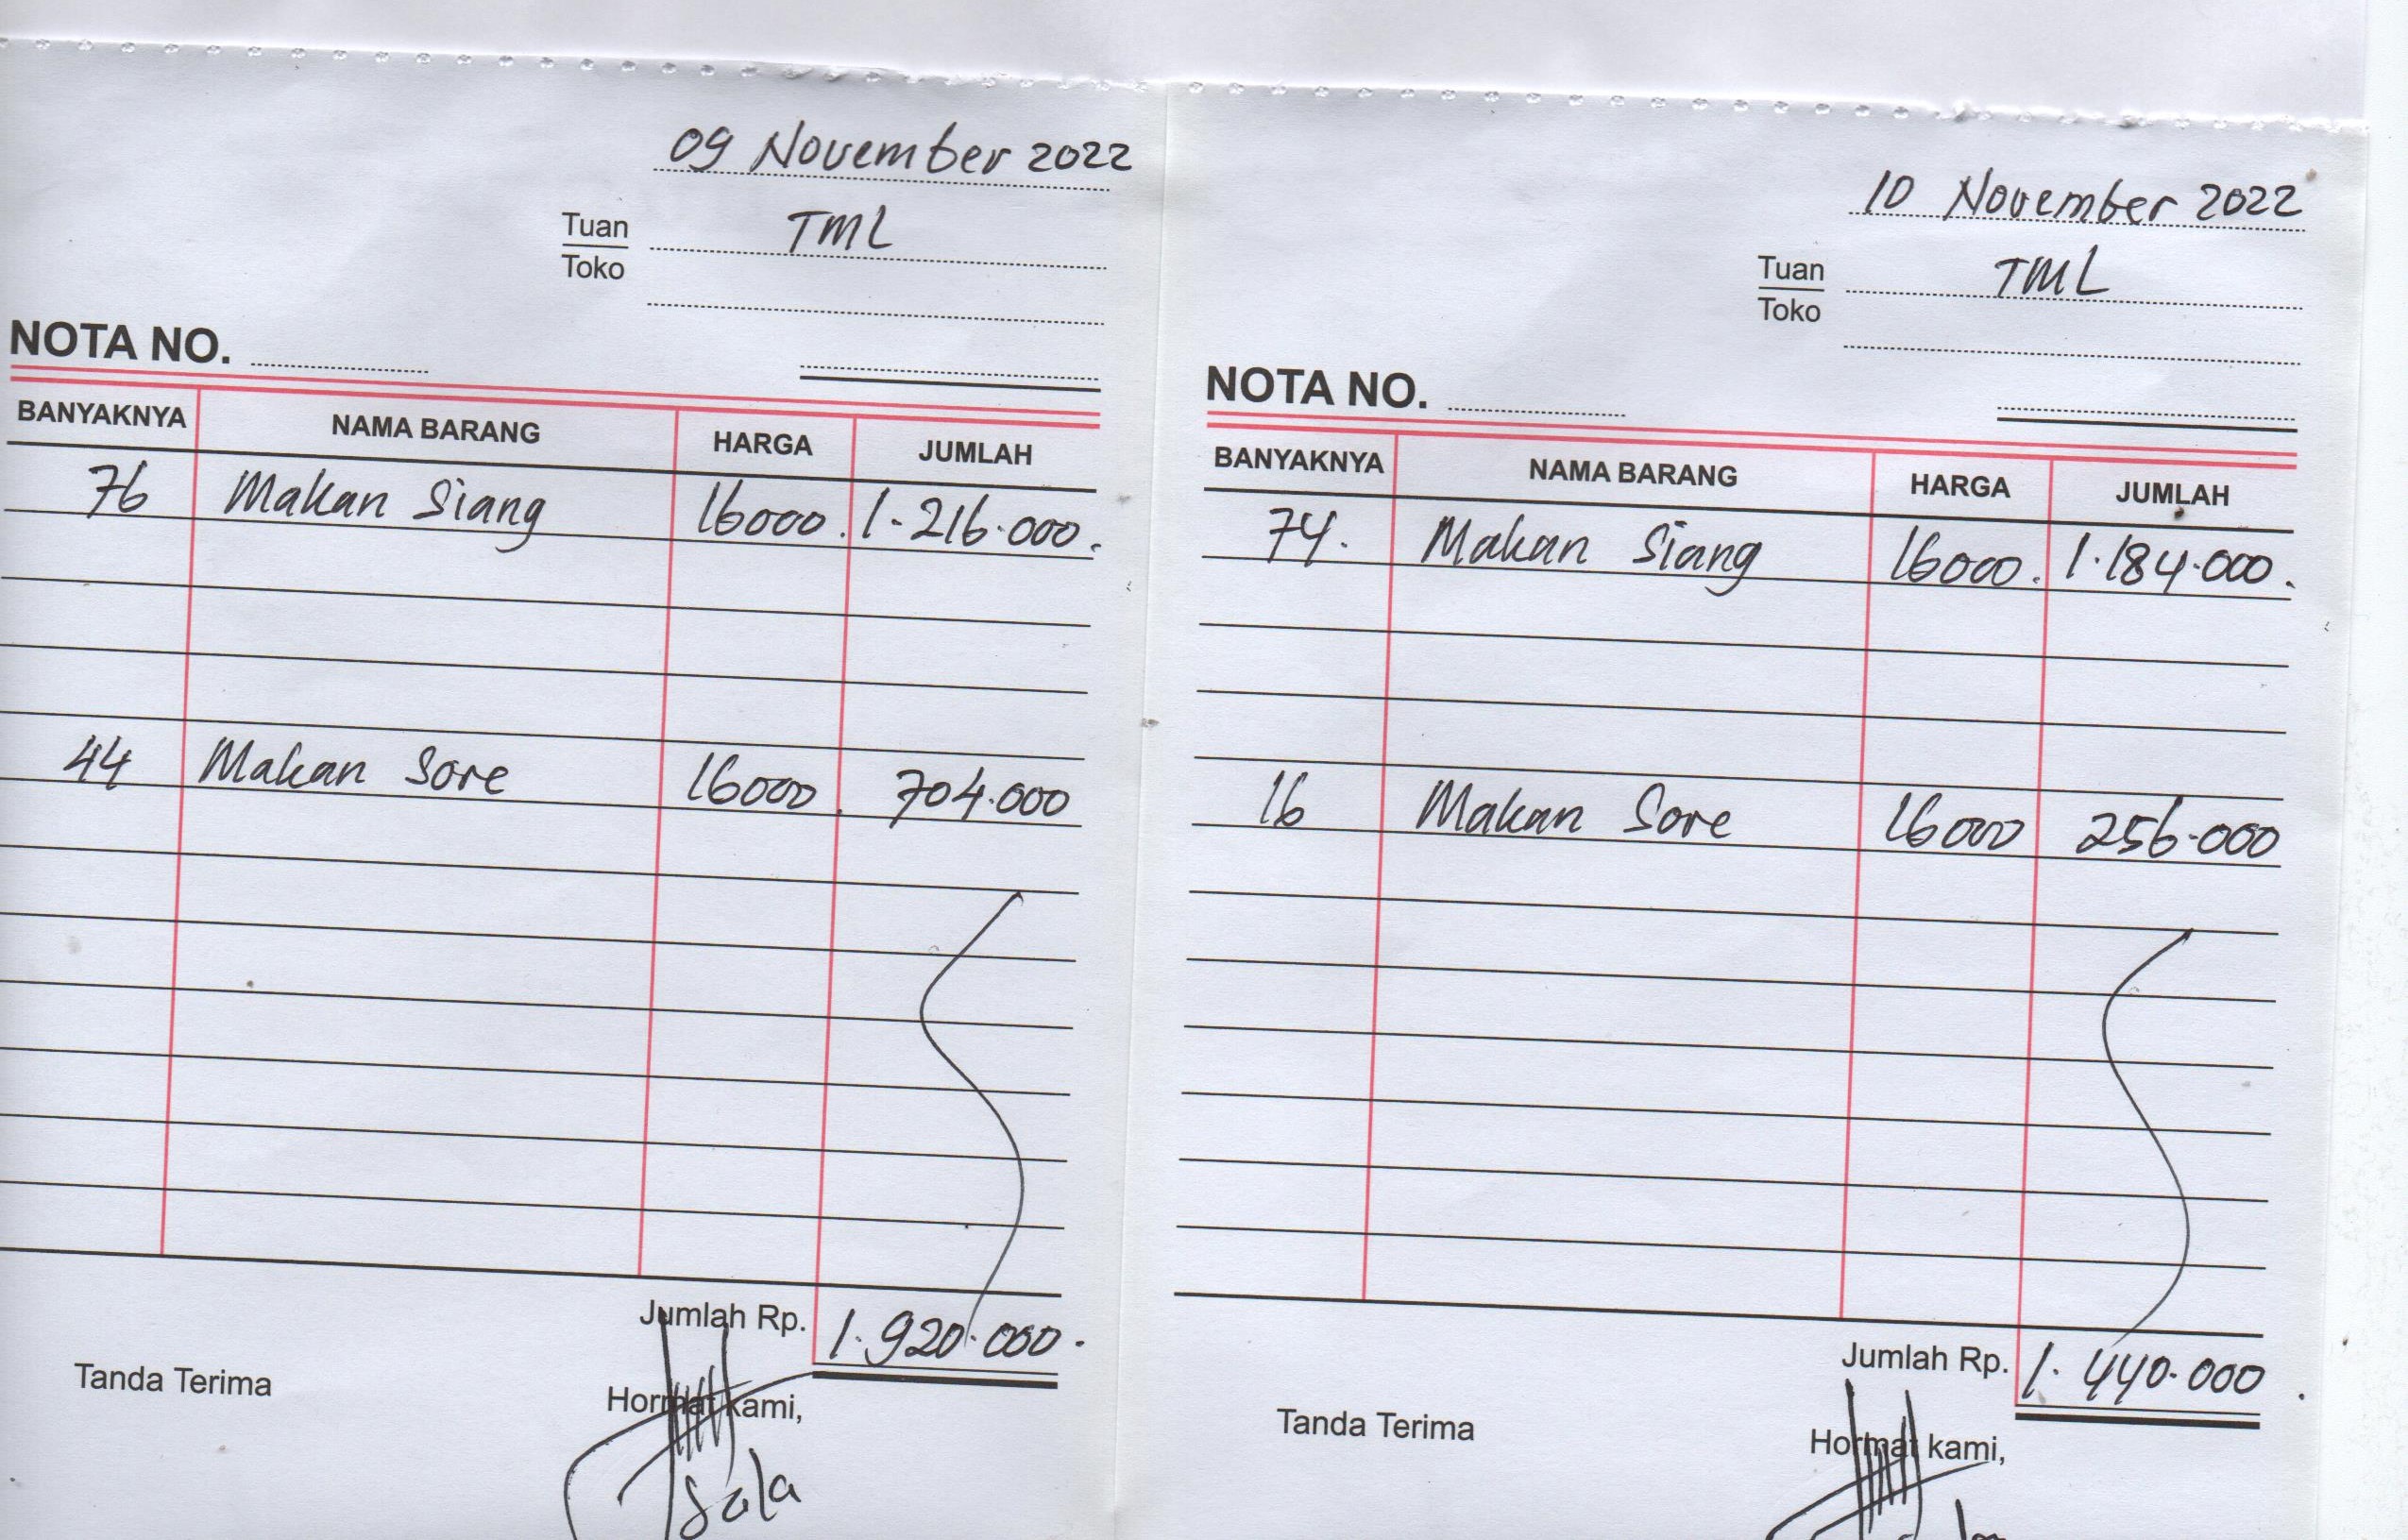 09 November 2022
Tuan TML
Toko
NOTA NO.
BANYAKNYA NAMA BARANG HARGA JUMLAH
76 Makan Siang 16000. 1.216.000.
44 Makan Sore 16000. 704.000
Jumlah Rp. 1.920.000.
Tanda Terima Hormat kami,
Sala
10 November 2022
Tuan TML
Toko
NOTA NO.
BANYAKNYA NAMA BARANG HARGA JUMLAH
74. Makan Siang 16000. 1.184.000.
16 Makan Sore 16000 256.000
Jumlah Rp. 1.440.000.
Tanda Terima Hormat kami,